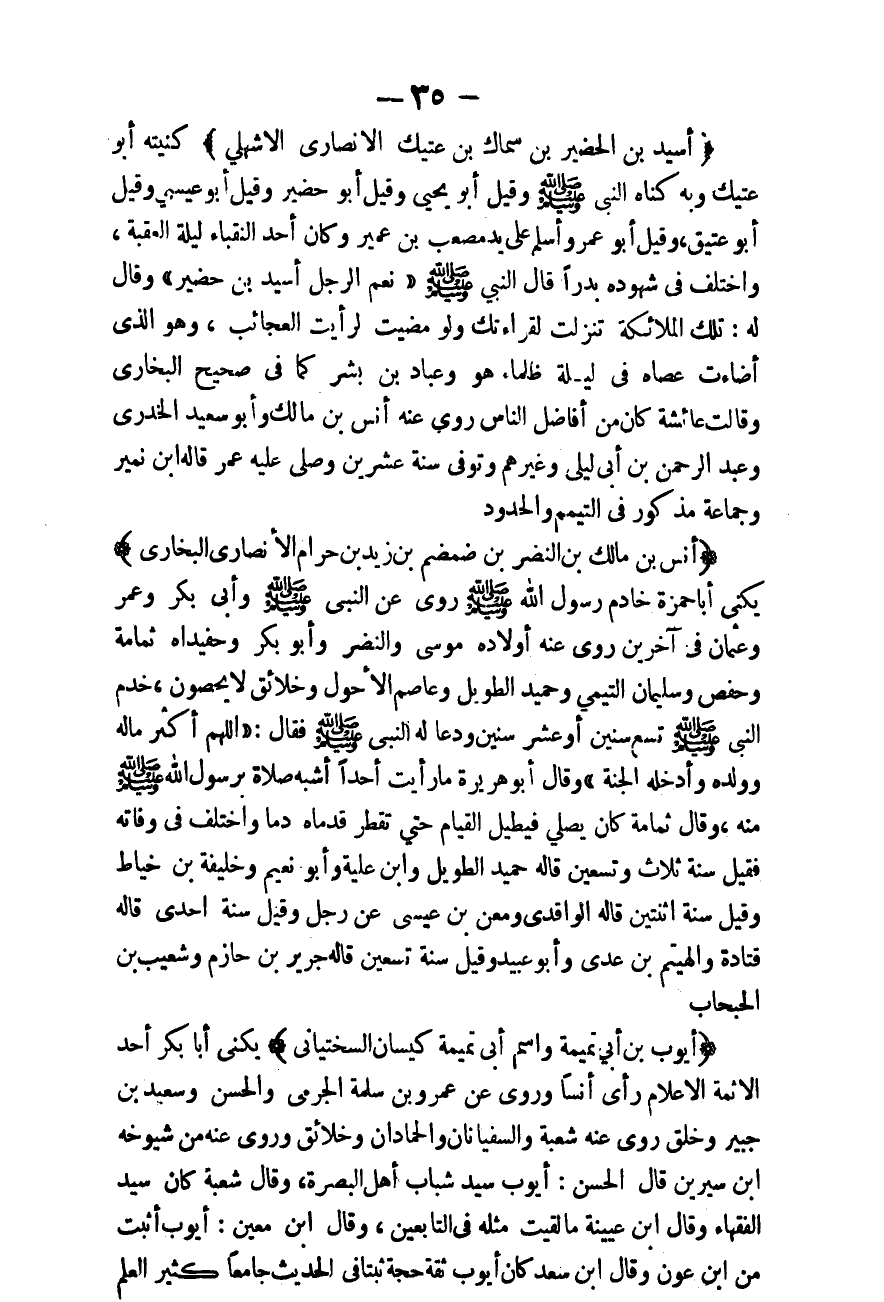 — ٣٥ —
﴿ أسيد بن الحضير بن سماك بن عتيك الانصارى الاشهلي ﴾ كنيته أبو
عتيك وبه كناه النبى ﷺ وقيل أبو يحيى وقيل أبو حضير وقيل أبو عيسى وقيل
أبو عتيق، وقيل أبو عمرو أسلم على يد مصعب بن عمير وكان أحد النقباء ليلة العقبة ،
واختلف فى شهوده بدراً قال النبي ﷺ « نعم الرجل أسيد بن حضير» وقال
له : تلك الملائكة تنزلت لقراءتك ولو مضيت لرأيت العجائب ، وهو الذى
أضاءت عصاه فى ليـلة ظلماء هو وعباد بن بشر كما فى صحيح البخارى
وقالت عائشة كان من أفاضل الناس روي عنه أنس بن مالك وأبو سعيد الخدرى
وعبد الرحمن بن أبى ليلى وغيرهم وتوفى سنة عشرين وصلى عليه عمر قاله ابن نمير
وجماعة مذكور فى التيمم والحدود
﴿أنس بن مالك بن النضر بن ضمضم بن زيد بن حرام الأنصارى البخارى ﴾
يكنى أبا حمزة خادم رسول الله ﷺ روى عن النبى ﷺ وأبى بكر وعمر
وعثمان فى آخرين روى عنه أولاده موسى والنضر وأبو بكر وحفيداه ثمامة
وحفص وسليمان التيمي وحميد الطويل وعاصم الأحول وخلائق لا يحصون ، خدم
النبى ﷺ تسع سنين أو عشر سنين ودعا له النبى ﷺ فقال :«اللهم أكثر ماله
وولده وأدخله الجنة »وقال أبو هريرة ما رأيت أحداً أشبه صلاة برسول الله ﷺ
منه ،وقال ثمامة كان يصلي فيطيل القيام حتي تقطر قدماه دما واختلف فى وفاته
فقيل سنة ثلاث وتسعين قاله حميد الطويل وابن علية وأبو نعيم وخليفة بن خياط
وقيل سنة اثنتين قاله الواقدى ومعن بن عيسى عن رجل وقيل سنة احدى قاله
قتادة والهيثم بن عدى وأبو عبيد وقيل سنة تسعين قاله جرير بن حازم وشعيب بن
الحبحاب
﴿أيوب بن أبي تميمة واسم أبى تميمة كيسان السختيانى ﴾ يكنى أبا بكر أحد
الائمة الاعلام رأى أنساً وروى عن عمرو بن سلمة الجرمى والحسن وسعيد بن
جبير وخلق روى عنه شعبة والسفيانان والحمادان وخلائق وروى عنه من شيوخه
ابن سيرين قال الحسن : أيوب سيد شباب أهل البصرة، وقال شعبة كان سيد
الفقهاء وقال ابن عيينة ما لقيت مثله فى التابعين ، وقال ابن معين : أيوب أثبت
من ابن عون وقال ابن سعد كان أيوب ثقة حجة ثبتا فى الحديث جامعاً كثير العلم